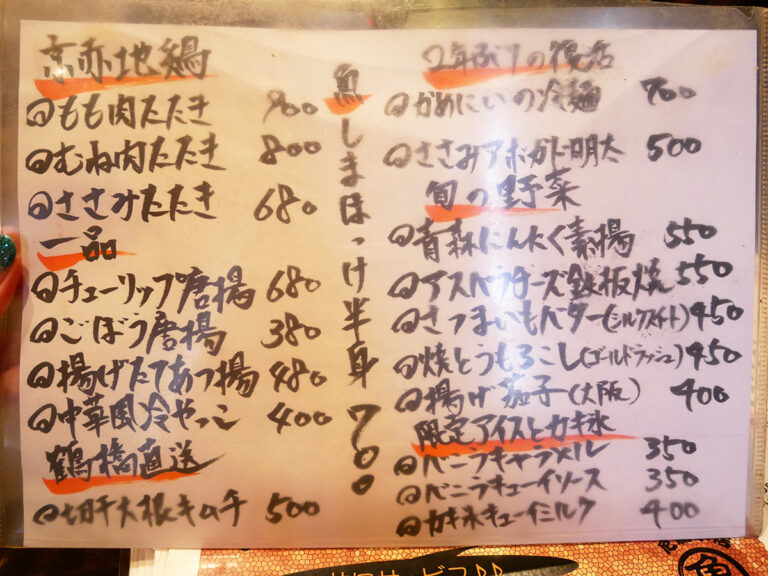 京赤地鶏
もも肉たたき 900
むね肉たたき 800
ささみたたき 680
一品
チューリップ唐揚 680
ごぼう唐揚 380
揚げたてあつ揚 480
中華風冷やっこ 400
鶴橋直送
切干大根キムチ 500
魚 しまほっけ半身 700
2年ぶりの復活
かめにいの冷麺 700
ささみアボカド明太 500
旬の野菜
青森にんにく素揚 550
アスパラチーズ鉄板焼 550
さつまいもバター(シルクスイート) 450
焼とうもろこし(ゴールドラッシュ) 450
揚げ茄子(大阪) 400
限定アイスとカキ氷
バニラキャラメル 350
バニラキューイソース 350
カキ氷キューイミルク 400
魚